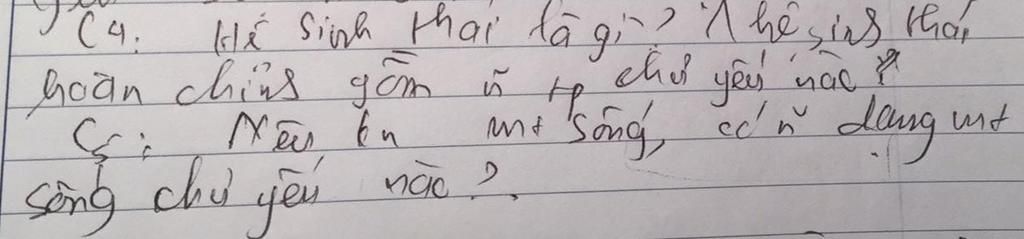 C4: Hệ sinh thái là gì? 1 hệ sinh thái
hoàn chỉnh gồm ~ tp chủ yếu nào?
C5: Nêu kn mt sống, có ~ dạng mt
sống chủ yếu nào?